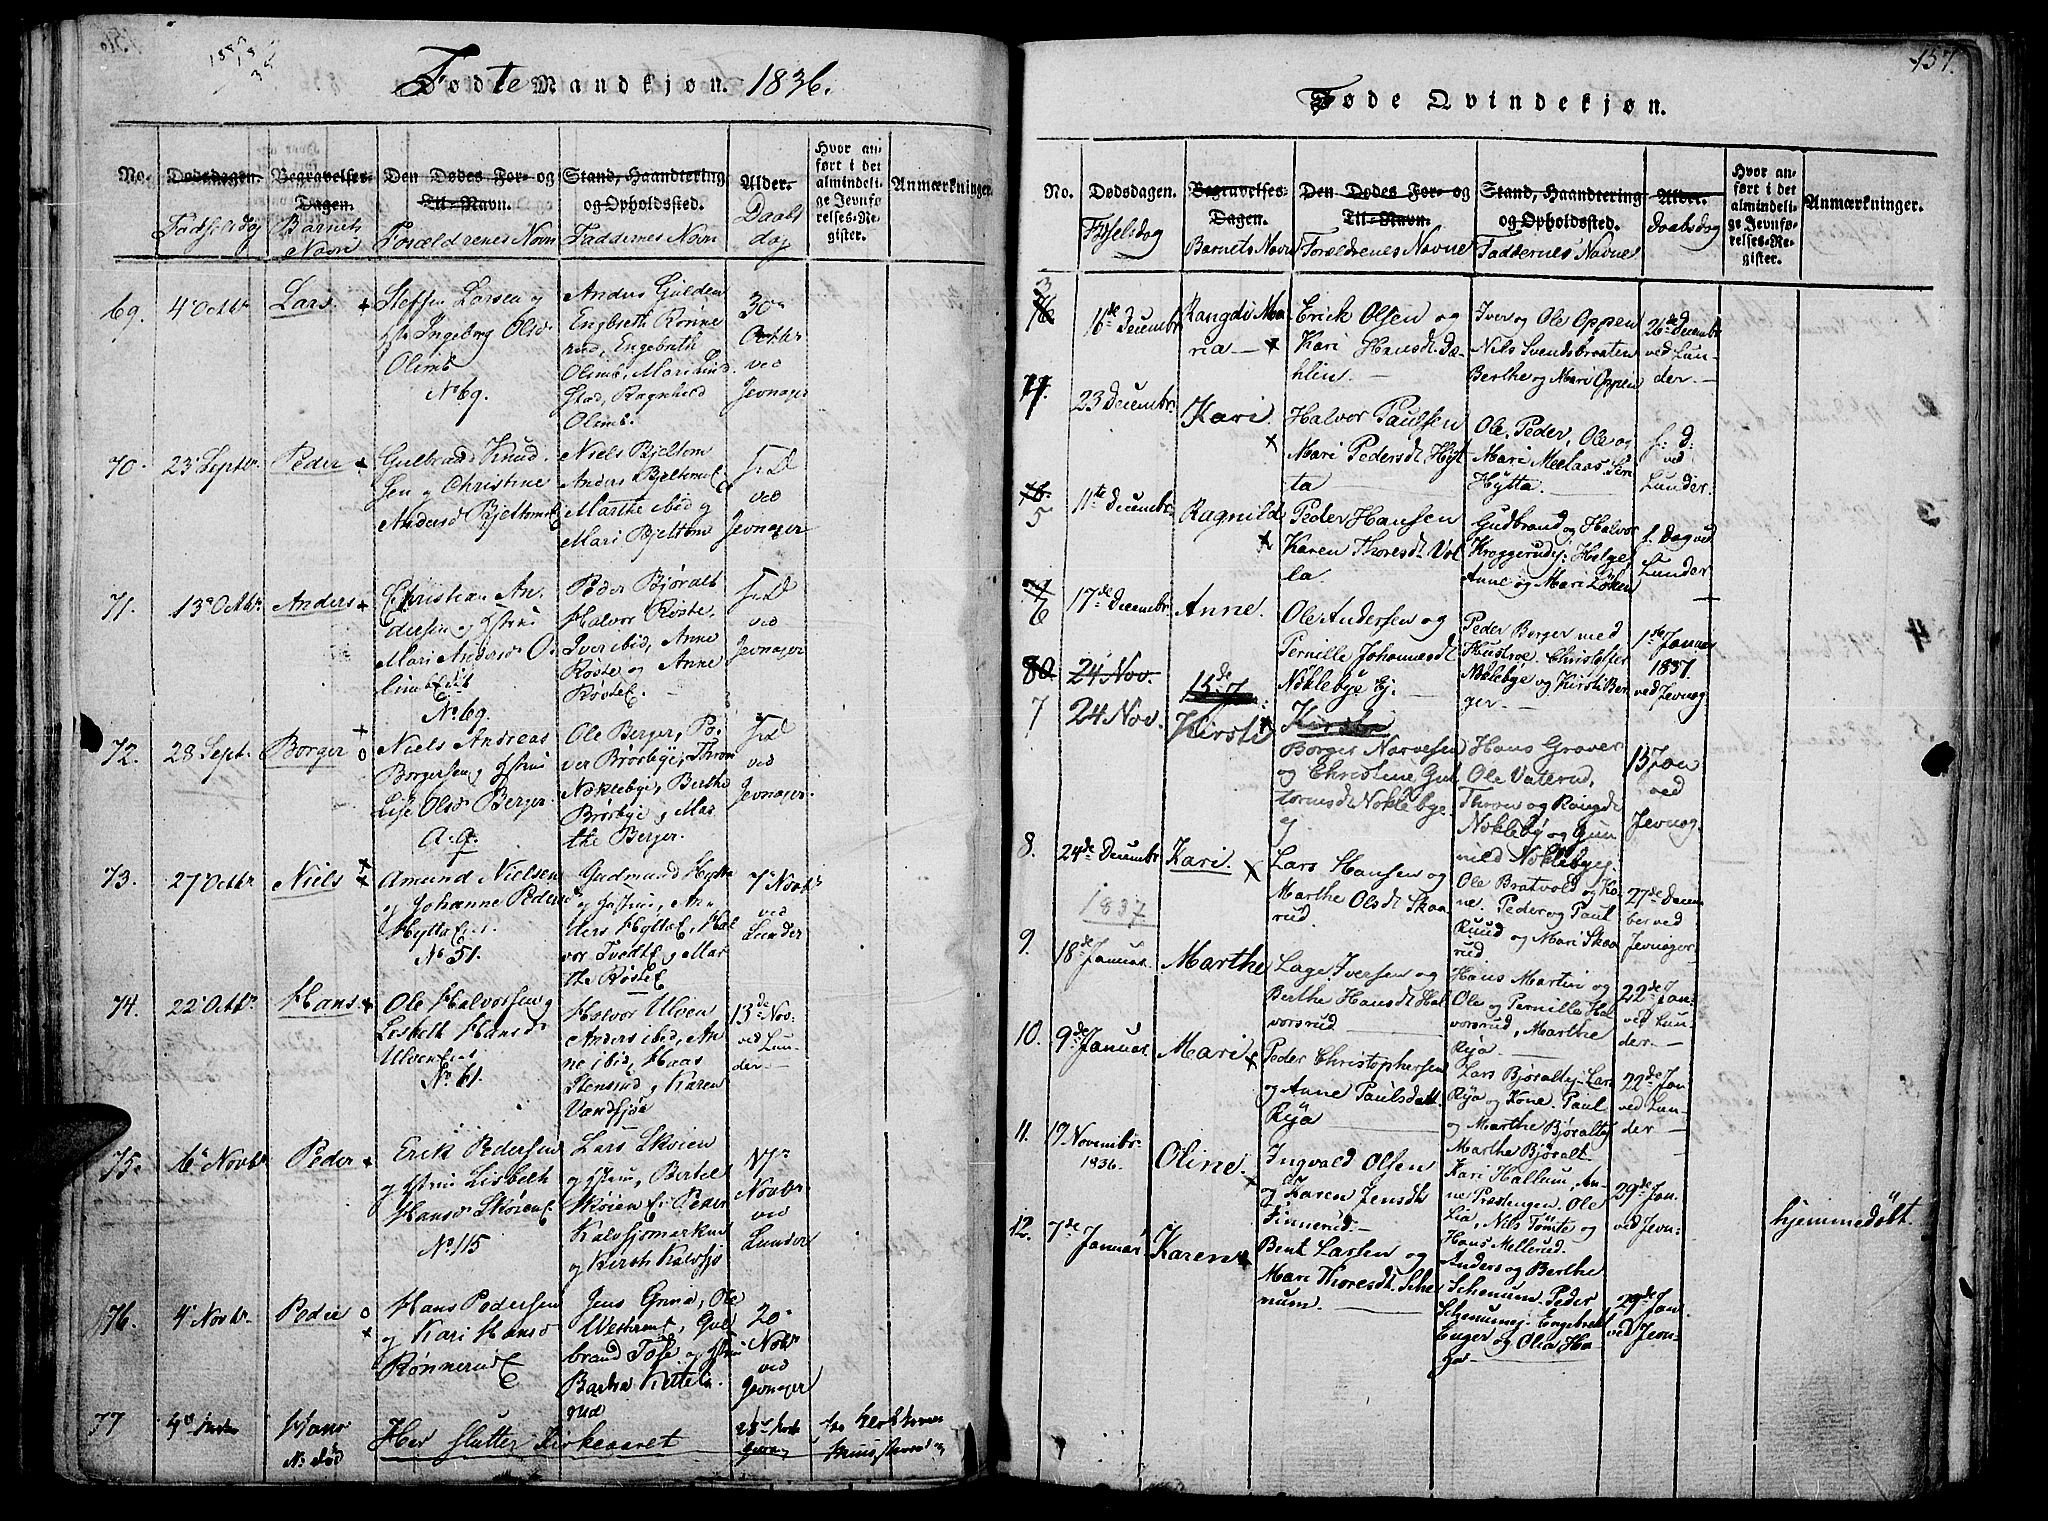 Fødte Mandkjøn. 1836.
No.
Dødsdagen.
Fødselsdag
Begravelses-
Dagen.
Barnets
Navn
Den Dødes For- og
Til-Navn.
Forældrenes Navn
Stand, Haandtering
og Opholdssted.
Faddernes Navn
Alder.
Daabs
dag
Hvor an-
ført i det
almindeli-
ge Jevnfø-
relses-Re-
gister.
Anmærkninger.
69.
4 Octbr
Lars
Steffen Larsen og
Ingeborg Olsd
Olimb
No 69.
Anders Gulden
Engebreth Rønne
rud, Engebreth
Olimb, Mari Lind
stad, Ragnhild
Olimb.
30
Octbr
ved
Jevnager
70.
23 Septbr.
Peder
Gulbrand Knud
sen og Christine
Andersd Bjeltoms
Niels Bjeltom
Anders Bjeltoms
Marthe ibid og
Mari Bjeltom
ved
Jevnager
71.
13 Octbr
Anders
Christian An
dersen og
Mari Andersd O
limb
No. 69.
Peder Bjøralt
Halvor Røste
Iver ibid, Anne
Røste og Anne
Røste
ved
Jevnager
72.
28 Sept.
Borger
Niels Andreas
Borgersen og
Lise Olsd Berger
Ole Berger, P.
ver Brørbye, Thron
Noklebye, Berthe
Brørbye og Mar
the Berger.
ved
Jevnager
73.
27 Octbr
Niels
Amund Nielsen
og Johanne Pedersd
Hytta
No. 51.
Gudmund Hytta
An
ders Hytta, Hal
vor Tvedt og Mar
the Røste
7 Novbr
ved
Lunder
74.
22 Octbr
Hans
Ole Halvorsen og
Lisbeth Hansd
Ulven
No. 61.
Halvor Ulven
Anders ibid, An
ne ibid, Hans
Stensrud og Karen
Vandsjøe
13de Nov:
ved Lun-
der.
75.
6 Novbr
Peder
Erik Pedersen
og Lisbeth
Hansd Skøien
No. 115
Lars Skøien
Berthe
Skøien Peder
Kalvsjømarken
og Kirsti Kalvsjø
Novbr
ved
Lunder
76.
4 Novbr.
Peder
Hans Pedersen
og Kari Hansd
Rønnerud
Jens Grina, Ole
Westrent, Gul
brand Tose og
Barbra Ketels
rud
20
Novbr
ved
Jevnager
77
Hans
Her slutter Kirkeaaret
157.
Føde Qvindekjøn.
No.
Dødsdagen.
Fødselsdag
Begravelses-
Dagen.
Barnets Navn
Den Dødes For- og
Til-Navn.
Forældrenes Navne
Stand, Haandtering
og Opholdssted.
Faddernes Navne
Alder.
Daabsdag
Hvor an-
ført i det
almindeli-
ge Jevnfø-
relses-Re-
gister.
Anmærkninger.
3
76
16de Decembr
Rangdi Ma
ria
Erick Olsen og
Kari Hansdt Da
hlin.
Iver og Ole Oppen
Nils Svendsbraaten
Berthe og Mari Oppen
26de Decembr
ved Lun-
der.
77.
23 Decembr.
Kari.
Halvor Paulsen
Mari Pedersdt Hyt
ta
Ole, Peder, Ole og
Mari
Hytta.
s: d:
ved
Lunder.
5
11te Decembr
Ragnild
Peder Hansen
Karen Thoresdt Vol
la.
Gudbrand og Halvor
Kroggerud, Helge,
Anne og Mari Løken
s. Dag ved
Lunder
6
17de Decembr.
Anne.
Ole Andersen og
Pernille Johannesdt
Nøklebye Ej.
Peder Borger med
Hustroe. Christoffer
Nøklebye og Kirsti Ber
ger.
1ste Januar
1837.
ved Jevnag
80
24 Nov.
7
24 Nov.
Kirsti
Borger Narvesen
og Christine Gul
tormsdt Noklebye
ej
Hans Graver
Ole Vaterud,
Thron og Rangdi
Nokleby og Gun
nild Noklebyej
15 Jan
ved
Jevnag.
8.
24de Decembr
Kari.
Lars Hansen og
Marthe Olsdt Skaa
rud.
Ole Bratvold og Ko
ne. Peder og Paul
Ruud og Mari Skaa
rud
27de Decem
ber ved
Jevnager
1837
9.
18de Januar.
Marthe
Lage Iversen og
Berthe Hansdt Hal
vorsrud
Hans Martin og
Ole og Pernille Hal
vorsrud, Marthe
Rya.
22de Jan-
ved Lun-
der.
10.
9de Januar.
Mari
Peder Christophersen
og Anne Paulsdatt.
Rya
Lars Bjøraltej. Lars
Rya og Kone. Paul
og Marthe Bjøraltej
Marthe Bjøralt.
22de Jan
ved Lun-
der
11.
17 Novembr.
1836.
Oline.
Ingvald Olsen
og Karen Jensdt
Finnerud.
Kari Hallum, An-
ne Præstengen. Ole
Lia, Nils Tømte og
Hans Mellerud.
29de Jan.
ved Jevn:
12.
7de Januar
Karen
Bent Larsen og
Mari Thoresdt Sche
num.
Anders og Berthe
Schenum. Peder
Schenumej. Engebrekt
Enger og Olia Ha
ga
29de Jan
ved Jevn:
hjemmedøbt.